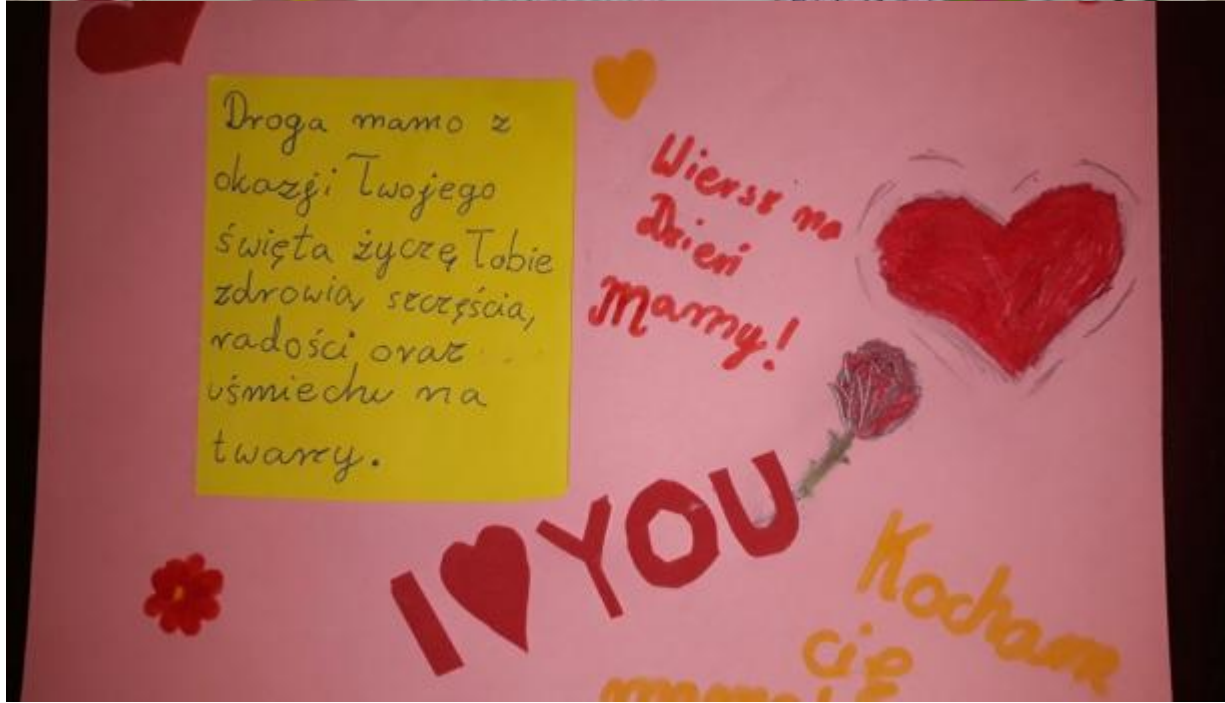 Droga mamo z
okazji Twojego
święta życzę Tobie
zdrowia, szczęścia,
radości oraz
uśmiechu na
twarzy.
Wiersz na
Dzień
Mamy!
I ❤ YOU
Kocham
cię